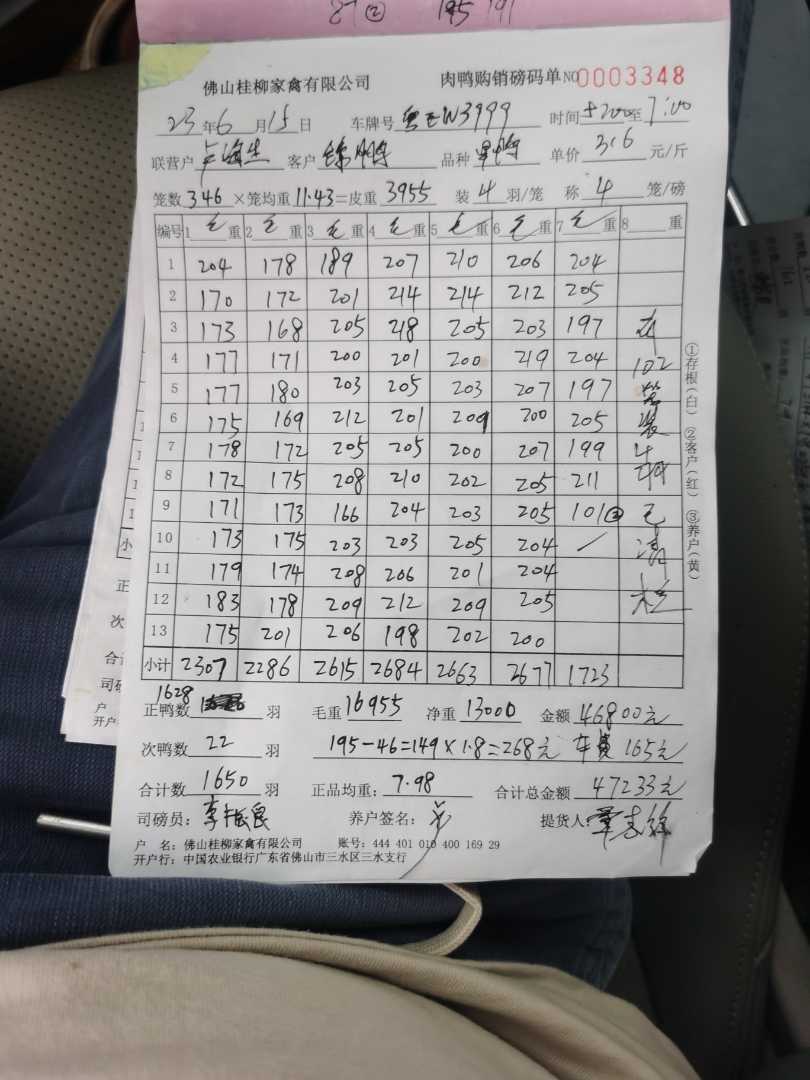 195 191
佛山桂柳家禽有限公司 肉鸭购销磅码单 NO0003348
23年6月15日 车牌号 粤EW3999 时间 至7:00
联营户 客户 品种 单价 3.6 元/斤
笼数 346 ×笼均重 11.43=皮重 3955 装 4 羽/笼 称 4 笼/磅
编号 1 毛 重 2 毛 重 3 毛 重 4 毛 重 5 毛 重 6 毛 重 7 毛 重 8 重
1 204 178 189 207 210 206 204
2 170 172 201 214 214 212 205
3 173 168 205 218 205 203 197
4 177 171 200 201 200 219 204 102
5 177 180 203 205 203 207 197 笼
6 175 169 212 201 209 200 205 装
7 178 172 205 205 200 207 199 4
8 172 175 208 210 202 205 211
9 171 173 166 204 203 205 101② 
10 173 175 203 203 205 204
11 179 174 208 206 201 204
12 183 178 209 212 209 205
13 175 201 206 198 202 200
小计 2307 2286 2615 2684 2663 2677 1723
1628
正鸭数 羽 毛重 16955 净重 13000 金额 46800元
次鸭数 22 羽 195-46=149×1.8=268元 车费 165元
合计数 1650 羽 正品均重: 7.98 合计总金额 47233元
司磅员: 养户签名: 提货人:
户 名: 佛山桂柳家禽有限公司 账号: 444 401 010 400 169 29
开户行: 中国农业银行广东省佛山市三水区三水支行
①存根(白) ②客户(红) ③养户(黄)